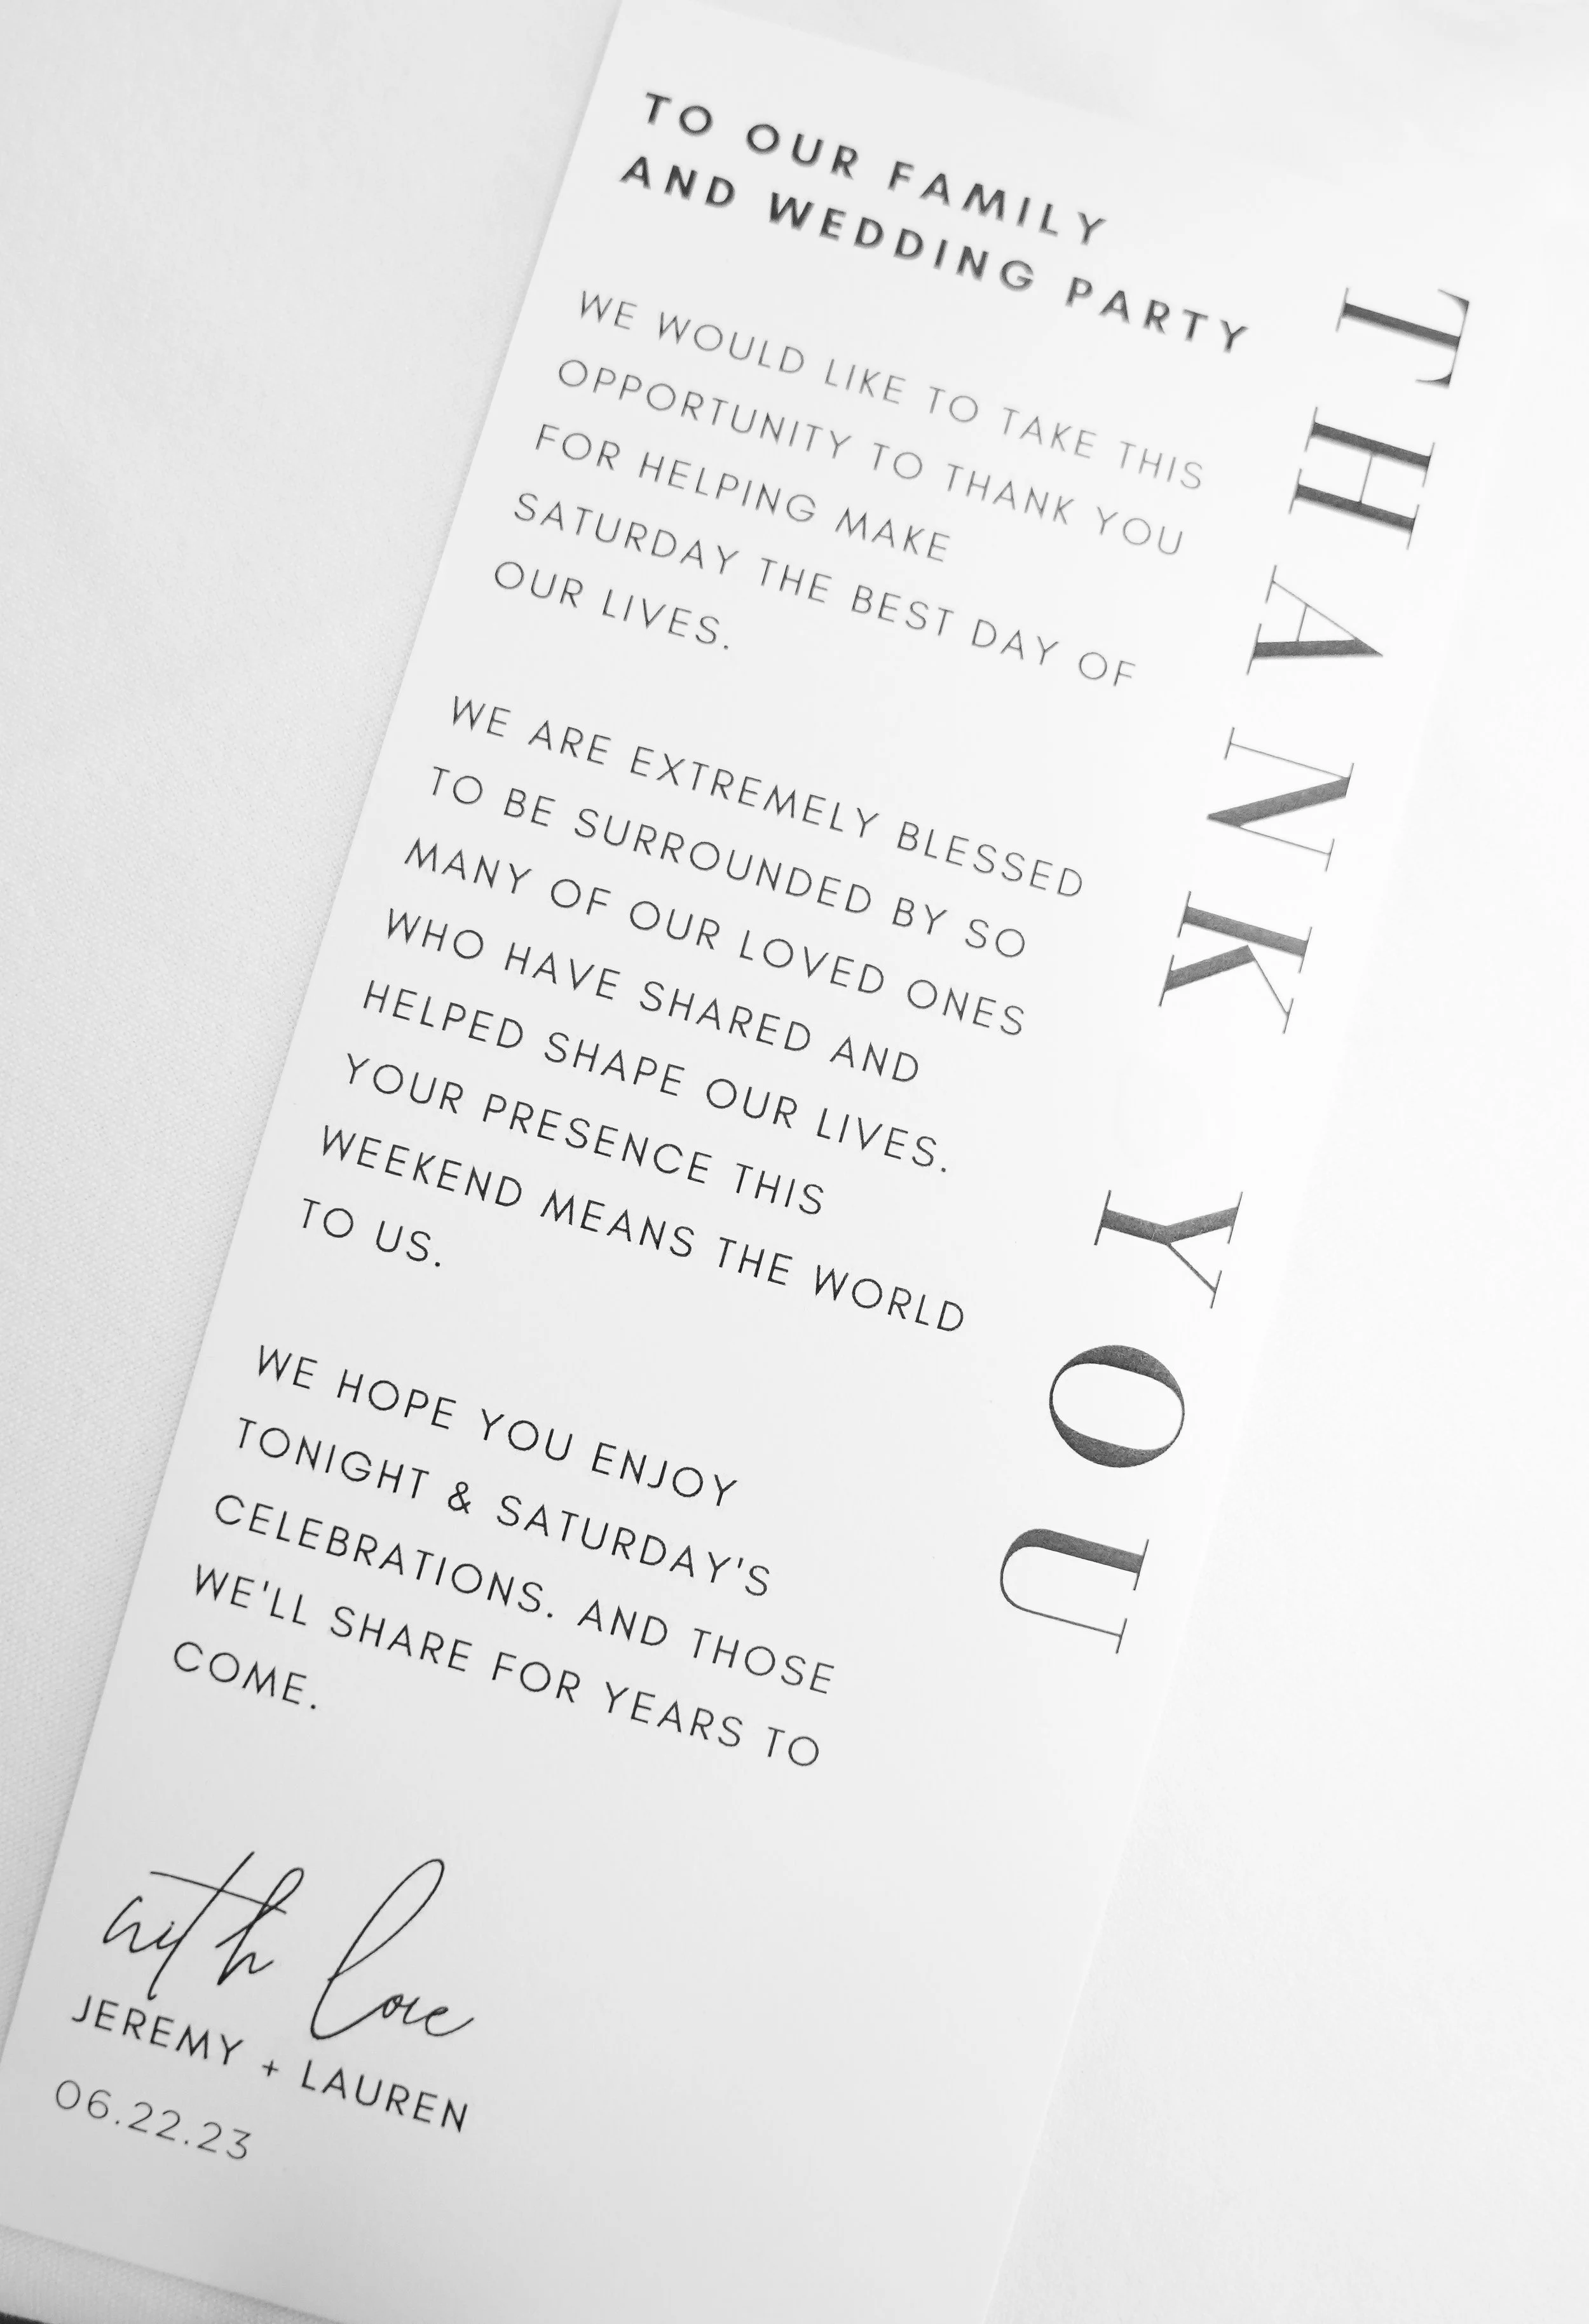 TO OUR FAMILY
AND WEDDING PARTY
WE WOULD LIKE TO TAKE THIS
OPPORTUNITY TO THANK YOU
FOR HELPING MAKE
SATURDAY THE BEST DAY OF
OUR LIVES.
WE ARE EXTREMELY BLESSED
TO BE SURROUNDED BY SO
MANY OF OUR LOVED ONES
WHO HAVE SHARED AND
HELPED SHAPE OUR LIVES.
YOUR PRESENCE THIS
WEEKEND MEANS THE WORLD
TO US.
WE HOPE YOU ENJOY
TONIGHT & SATURDAY'S
CELEBRATIONS. AND THOSE
WE'LL SHARE FOR YEARS TO
COME.
with love
JEREMY + LAUREN
06.22.23
THANK YOU